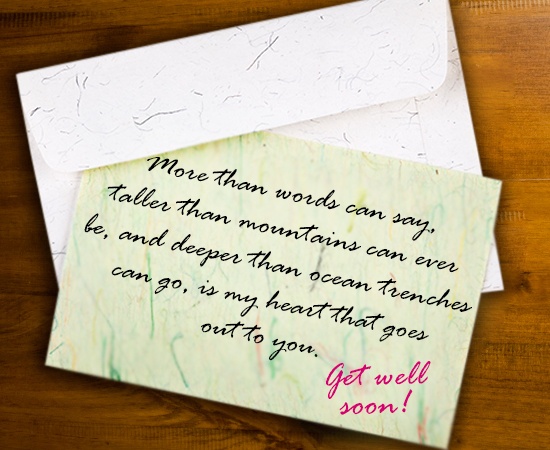 More than words can say,
taller than mountains can ever
be, and deeper than ocean trenches
can go, is my heart that goes
out to you.
Get well
soon!